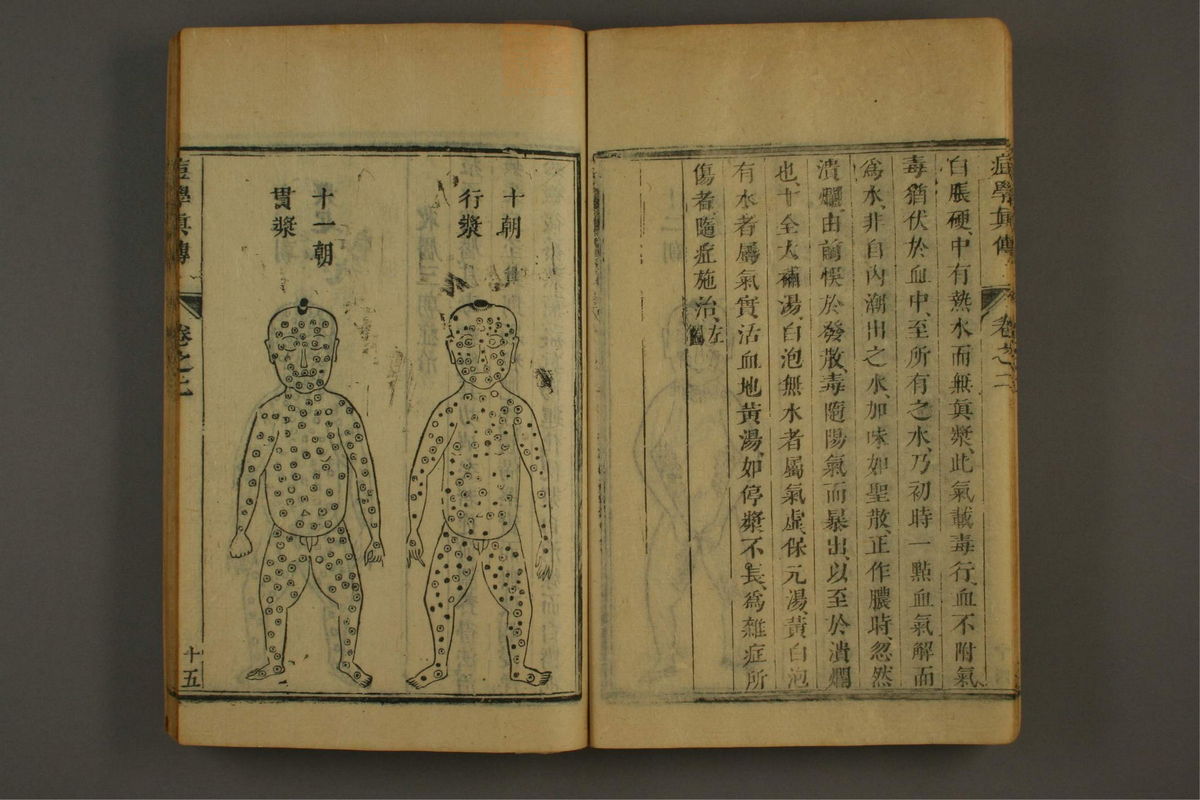 痘學真傳
卷之二
白脹硬、中有熱水而無真漿、此氣載毒行、血不附氣、
毒猶伏於血中、至所有之水、乃初時一點血氣解而
為水、非自內潮出之水、加味如聖散、正作膿時、忽然
潰爛、由前悞於發散、毒隨陽氣而暴出、以至於潰爛
也、十全大補湯、白泡無水者屬氣虛、保元湯、黃白泡
有水者屬氣實、活血地黃湯、如停漿不長、為雜症所
傷者、隨症施治、左
十朝
行漿
十一朝
貫漿
痘學真傳
卷之二
十五